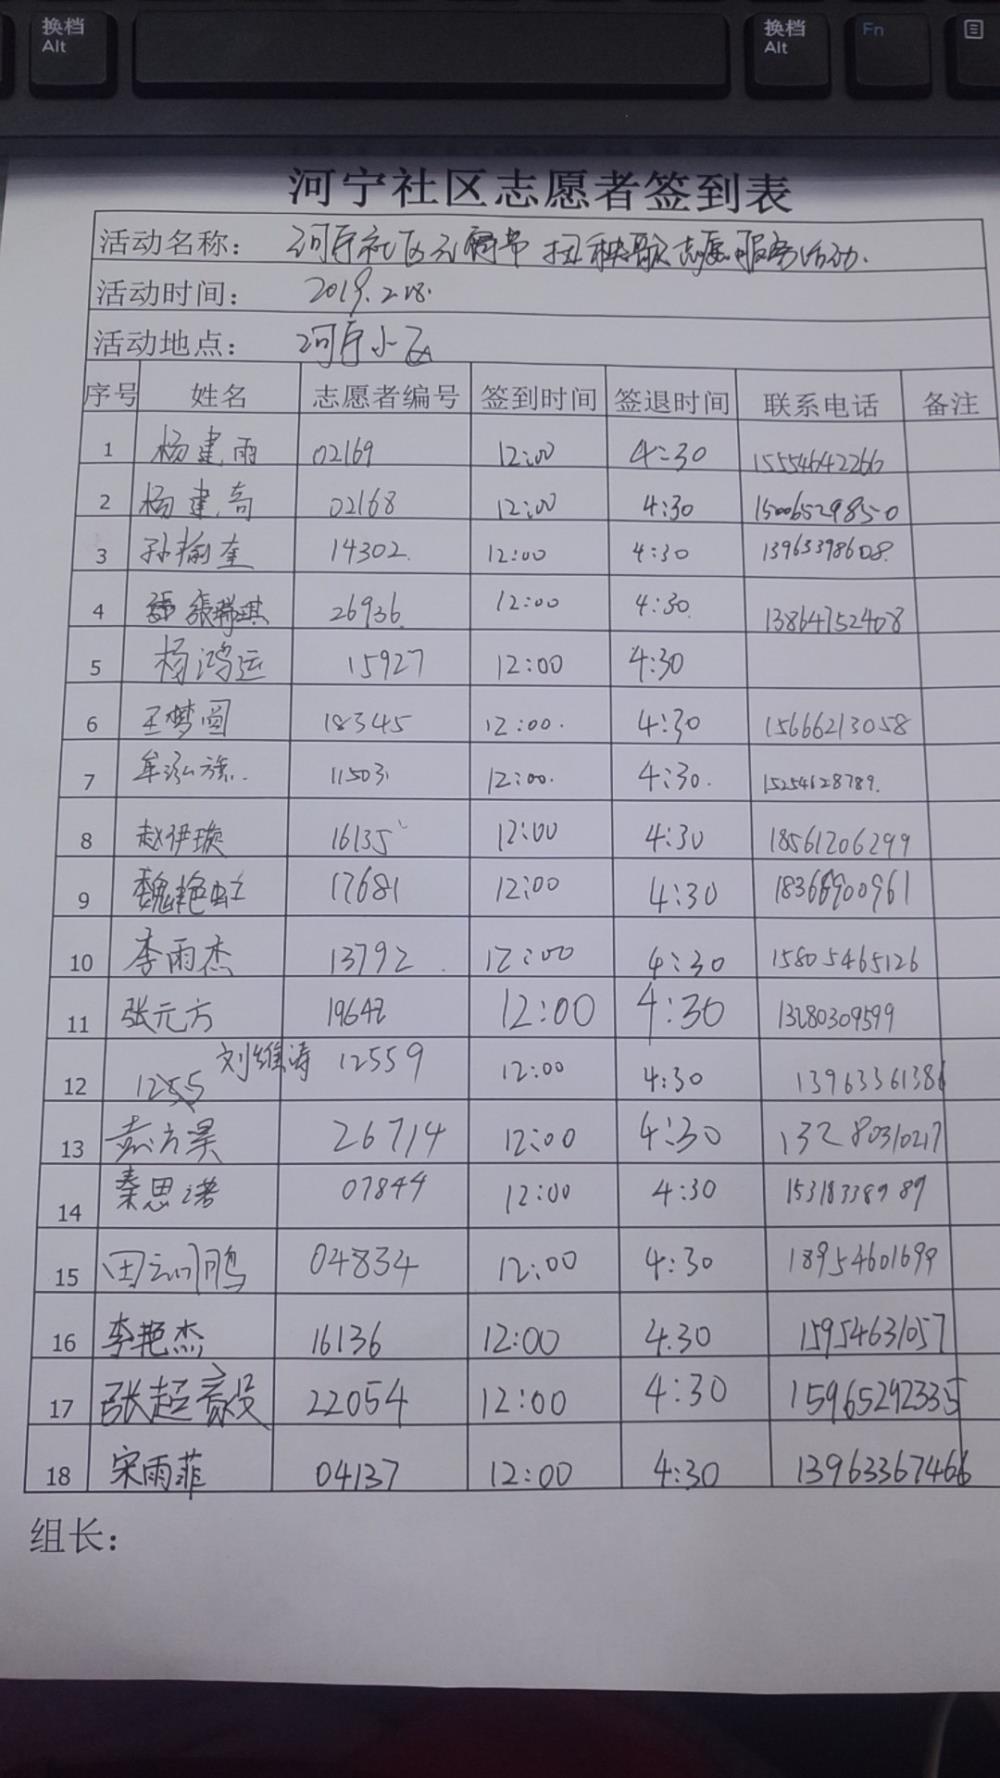 换档
Alt
换档
Alt
Fn
河宁社区志愿者签到表
活动名称: 河宁社区元宵节 扭秧歌志愿服务活动.
活动时间: 2019.2.18.
活动地点: 河宁小区
序号 姓名 志愿者编号 签到时间 签退时间 联系电话 备注
1 杨建雨 02169 12:00 4:30 15554642266
2 杨建奇 02168 12:00 4:30 15006529850
3 孙瑜奎 14302. 12:00 4:30 13963398608.
4 張瑞琪 26936. 12:00 4:30. 13864752408
5 杨鸿运 15927 12:00 4:30
6 王梦圆 18345 12:00. 4:30 15666213058
7 牟泓旗. 11503 12:00. 4:30. 15254628789.
8 赵伊璇 16135 12:00 4:30 18561206299
9 魏艳虹 17681 12:00 4:30 18366900961
10 李雨杰 13792. 12:00 4:30 15805465126
11 张元方 19642 12:00 4:30 13280309599
12 1255 刘维涛 12559 12:00 4:30 13963361386
13 袁方昊 26714 12:00 4:30 13280310217
14 秦思诺 07844 12:00 4:30 15318338989
15 田云鹏 04834 12:00 4:30 18954601699
16 李艳杰 16136 12:00 4.30 15954631057
17 张超毅 22054 12:00 4:30 15965292335
18 宋雨菲 04137 12:00 4:30 13963367466
组长: